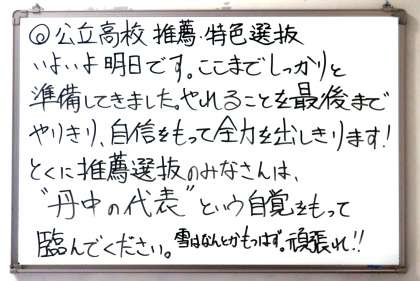 ◎公立高校 推薦・特色選抜
いよいよ明日です。ここまでしっかりと
準備してきました。やれることを最後まで
やりきり、自信をもって全力を出しきります!
とくに推薦選抜のみなさんは、
"丹中の代表"という自覚をもって
臨んでください。雪はなんとかもつはず。頑張れ!!